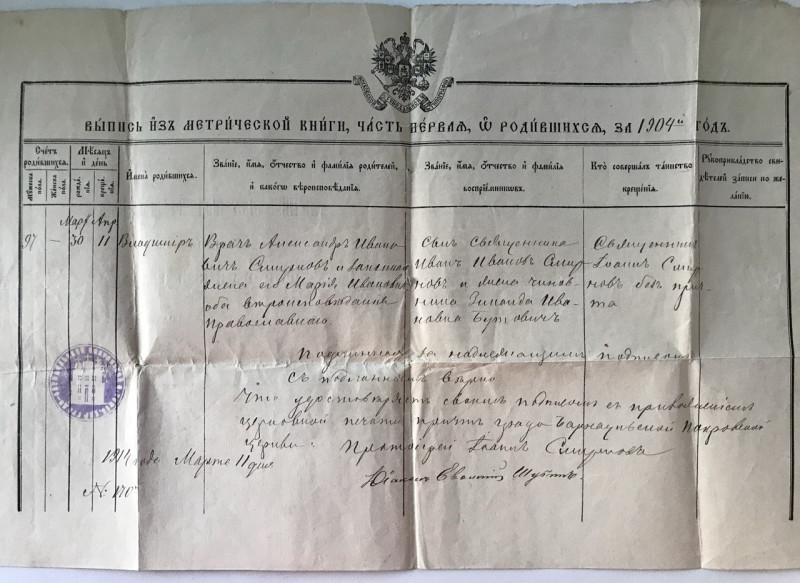 ВЫПИСЬ ИЗЪ МЕТРИЧЕСКОЙ КНИГИ, ЧАСТЬ ПЕРВАЯ, Ѿ РОДИВШИХСЯ, ЗА 1904й ГОДЪ.
Счетъ родившихся.
Мужеска пола.
Женска пола.
Мѣсяцъ и день
рожденія.
крещенія.
Имена родившихся.
Званіе, имя, отчество и фамилія родителей,
и какого вѣроисповѣданія.
Званіе, имя, отчество и фамилія
воспріемниковъ.
Кто совершалъ таинство
крещенія.
Рукоприкладство свидѣтелей записи по желанію.
Мартъ Апр
97 — 30 11
Владиміръ
Врачъ Александръ Ивано
вичъ Смирновъ и законная
жена его Марія Ивановна
оба вѣроисповѣданія
Православнаго.
Сынъ священника
Иванъ Ивановъ Смир
новъ и жена чинов
ника Ива
новна Бутовичъ
Священникъ
Іоаннъ Смир
новъ безъ прич
та
Подлинная за надлежащимъ подписомъ
Съ подлиннымъ вѣрно
Что удостовѣряетъ своимъ подписомъ съ приложеніемъ
церковной печати причтъ града Барнаульской Покровской
церкви. Протоіерей Іоаннъ Смирновъ
1914 года Марта 11 дня
Діаконъ Евгеній
№ 170